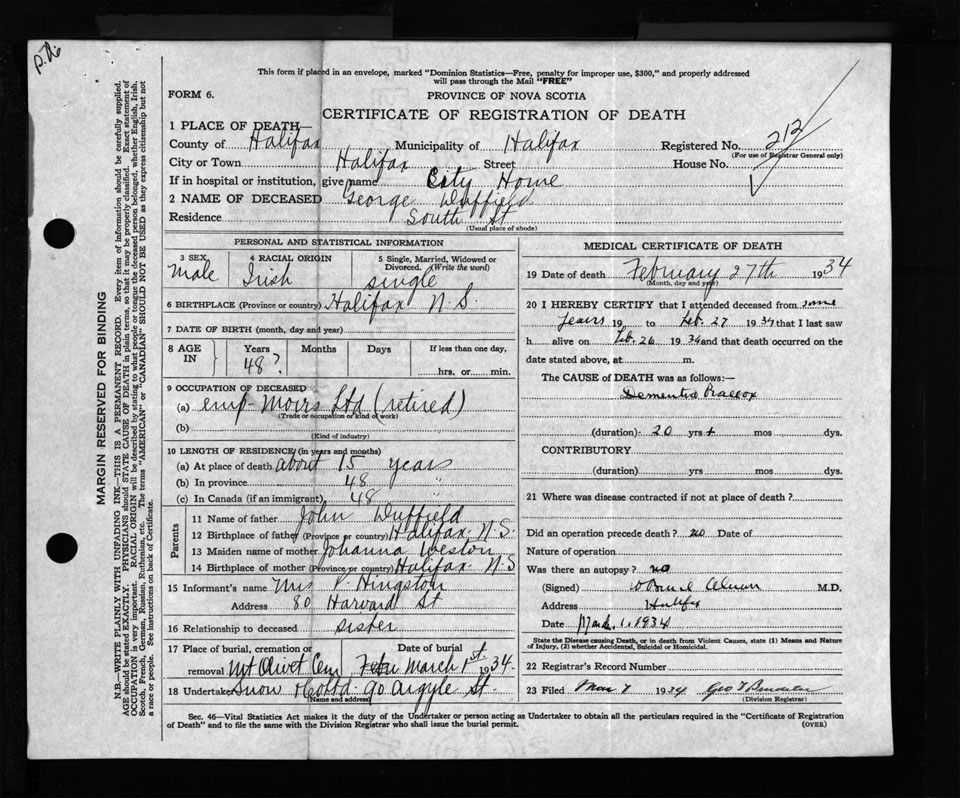 This form if placed in an envelope, marked "Dominion Statistics—Free, penalty for improper use, $300," and properly addressed
will pass through the Mail "FREE"
FORM 6.
PROVINCE OF NOVA SCOTIA
CERTIFICATE OF REGISTRATION OF DEATH
1 PLACE OF DEATH—
County of Halifax Municipality of Halifax Registered No. 212
(For use of Registrar General only)
City or Town Halifax Street House No.
If in hospital or institution, give name City Home
2 NAME OF DECEASED George Duffield
Residence South St
(Usual place of abode)
PERSONAL AND STATISTICAL INFORMATION
3 SEX Male
4 RACIAL ORIGIN Irish
5 Single, Married, Widowed or Divorced. (Write the word) single
6 BIRTHPLACE (Province or country) Halifax N.S.
7 DATE OF BIRTH (month, day and year)
8 AGE IN Years 48? Months Days If less than one day, hrs, or min.
9 OCCUPATION OF DECEASED
(a) emp- Moirs Ltd (retired)
(Trade or occupation or kind of work)
(b)
(Kind of industry)
10 LENGTH OF RESIDENCE (in years and months)
(a) At place of death about 15 years
(b) In province 48 "
(c) In Canada (if an immigrant) 48 "
Parents
11 Name of father John Duffield
12 Birthplace of father (Province or country) Halifax N.S.
13 Maiden name of mother Johanna Weston
14 Birthplace of mother (Province or country) Halifax N.S
15 Informant's name Mrs P. Hingston
Address 80 Harvard St
16 Relationship to deceased sister
17 Place of burial, cremation or removal Mt Olivet Cem Date of burial March 1st 1934
18 Undertaker Snow & Co Ltd. 90 Argyle St.
(Name and address)
MEDICAL CERTIFICATE OF DEATH
19 Date of death February 27th 1934
(Month, day and year)
20 I HEREBY CERTIFY that I attended deceased from some
years 19 to Feb. 27 1934 that I last saw
h alive on Feb. 26 1934 and that death occurred on the
date stated above, at m.
The CAUSE of DEATH was as follows:—
Dementia Praecox
(duration) 20 yrs + mos dys.
CONTRIBUTORY
(duration) yrs mos dys.
21 Where was disease contracted if not at place of death?
Did an operation precede death? no Date of
Nature of operation
Was there an autopsy? no
(Signed) M.D.
Address Halifax
Date March 1, 1934
State the Disease causing Death, or in death from Violent Causes, state (1) Means and Nature
of Injury, (2) whether Accidental, Suicidal or Homicidal.
22 Registrar's Record Number
23 Filed Mar 7 1934 Geo
(Division Registrar)
Sec. 46—Vital Statistics Act makes it the duty of the Undertaker or person acting as Undertaker to obtain all the particulars required in the "Certificate of Registration
of Death" and to file the same with the Division Registrar who shall issue the burial permit. (OVER)
MARGIN RESERVED FOR BINDING
N.B.—WRITE PLAINLY WITH UNFADING INK—THIS IS A PERMANENT RECORD. Every item of information should be carefully supplied.
AGE should be stated EXACTLY. PHYSICIANS should STATE CAUSE OF DEATH in plain terms, so that it may be properly classified. Exact statement of
OCCUPATION is very important. RACIAL ORIGIN will be described by stating to what people or tongue the deceased person belonged, whether English, Irish,
Scotch, French, German, Russian, Ruthenian, etc. The terms "AMERICAN" or "CANADIAN" SHOULD NOT BE USED as they express citizenship but not
a race or people. See instructions on back of Certificate.